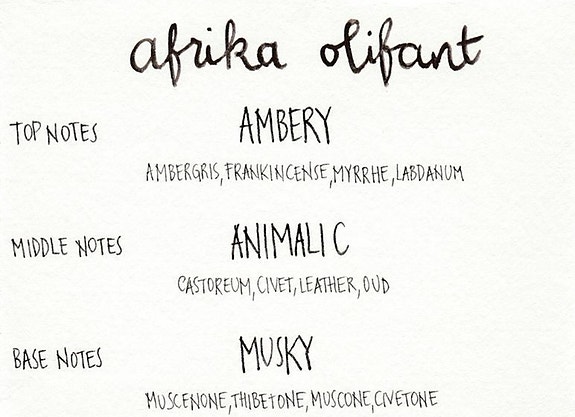 afrika olifant
TOP NOTES AMBERY
AMBERGRIS, FRANKINCENSE, MYRRHE, LABDANUM
MIDDLE NOTES ANIMALIC
CASTOREUM, CIVET, LEATHER, OUD
BASE NOTES MUSKY
MUSCENONE, THIBETONE, MUSCONE, CIVETONE